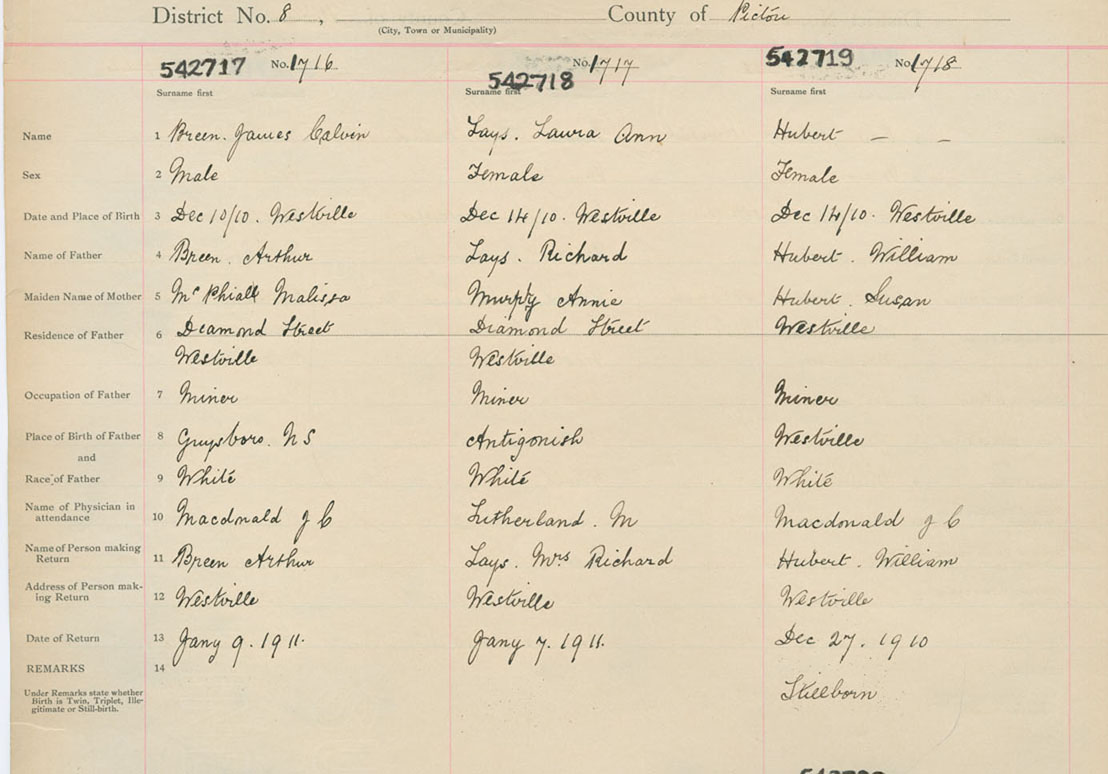 District No. 8, County of Pictou
(City, Town or Municipality)
542717 No. 1716 542718 No. 1717 542719 No. 1718
Surname first Surname first Surname first
Name 1 Breen. James Calvin Lays. Laura Ann Hubert — —
Sex 2 Male Female Female
Date and Place of Birth 3 Dec 10/10. Westville Dec 14/10. Westville Dec 14/10. Westville
Name of Father 4 Breen. Arthur Lays. Richard Hubert. William
Maiden Name of Mother 5 McPhiall Malissa Murphy Annie Hubert. Susan
Residence of Father 6 Deamond Street Diamond Street Westville
Westville Westville
Occupation of Father 7 Miner Miner Miner
Place of Birth of Father 8 Guysboro. NS Antigonish Westville
and
Race of Father 9 White White White
Name of Physician in
attendance 10 Macdnald J C Sutherland. M Macdonald J C
Name of Person making
Return 11 Breen Arthur Lays. Mrs Richard Hubert. William
Address of Person mak-
ing Return 12 Westville Westville Westville
Date of Return 13 Jany 9. 1911. Jany 7. 1911. Dec 27. 1910
REMARKS 14
Under Remarks state whether
Birth is Twin, Triplet, Ille-
gitimate or Still-birth.
Stillborn